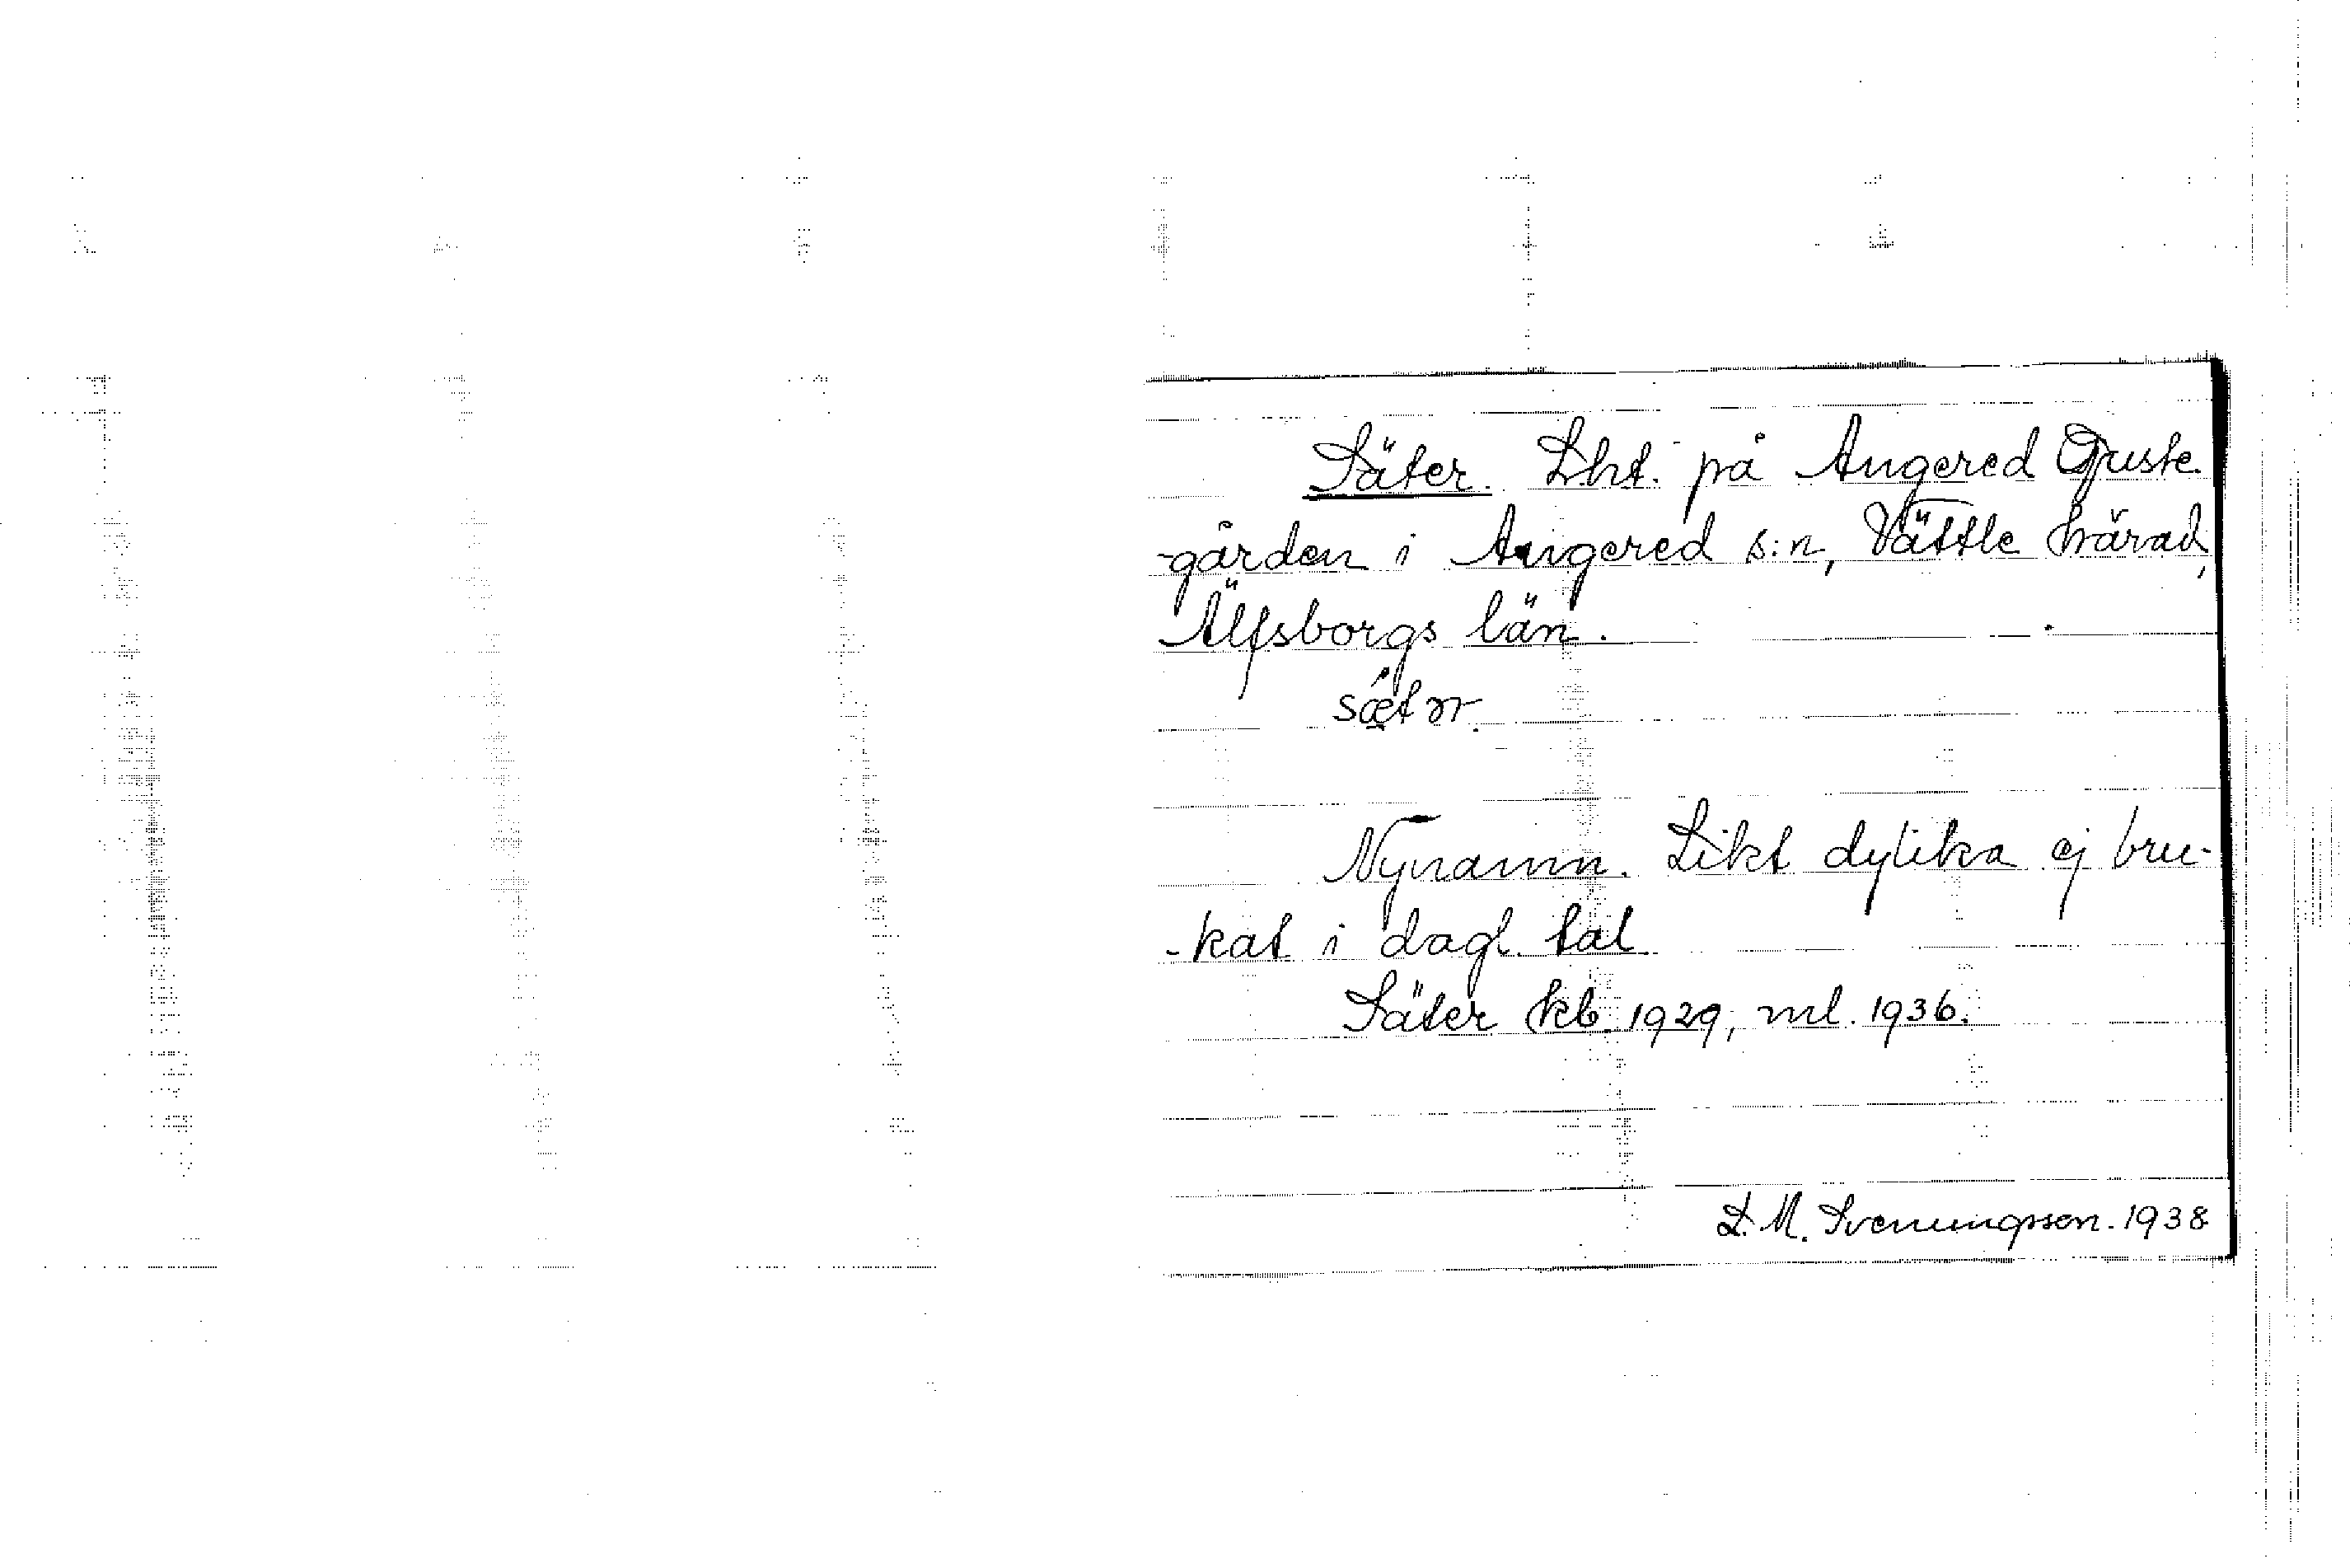 Säter. Lht. på Angered Guste
-gården i Angered s:n, Vättle härad,
Älfsborgs län.
sǽtər.
Nynamn. Likt dylika ej bru-
-kat i dagl. tal.
Säter kb. 1929, ml. 1936.
L. M. Svenungsson. 1938